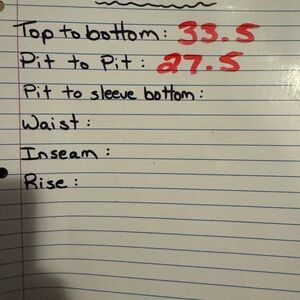 Top to bottom: 33.5
Pit to Pit: 27.5
Pit to sleeve bottom:
Waist:
Inseam:
Rise: